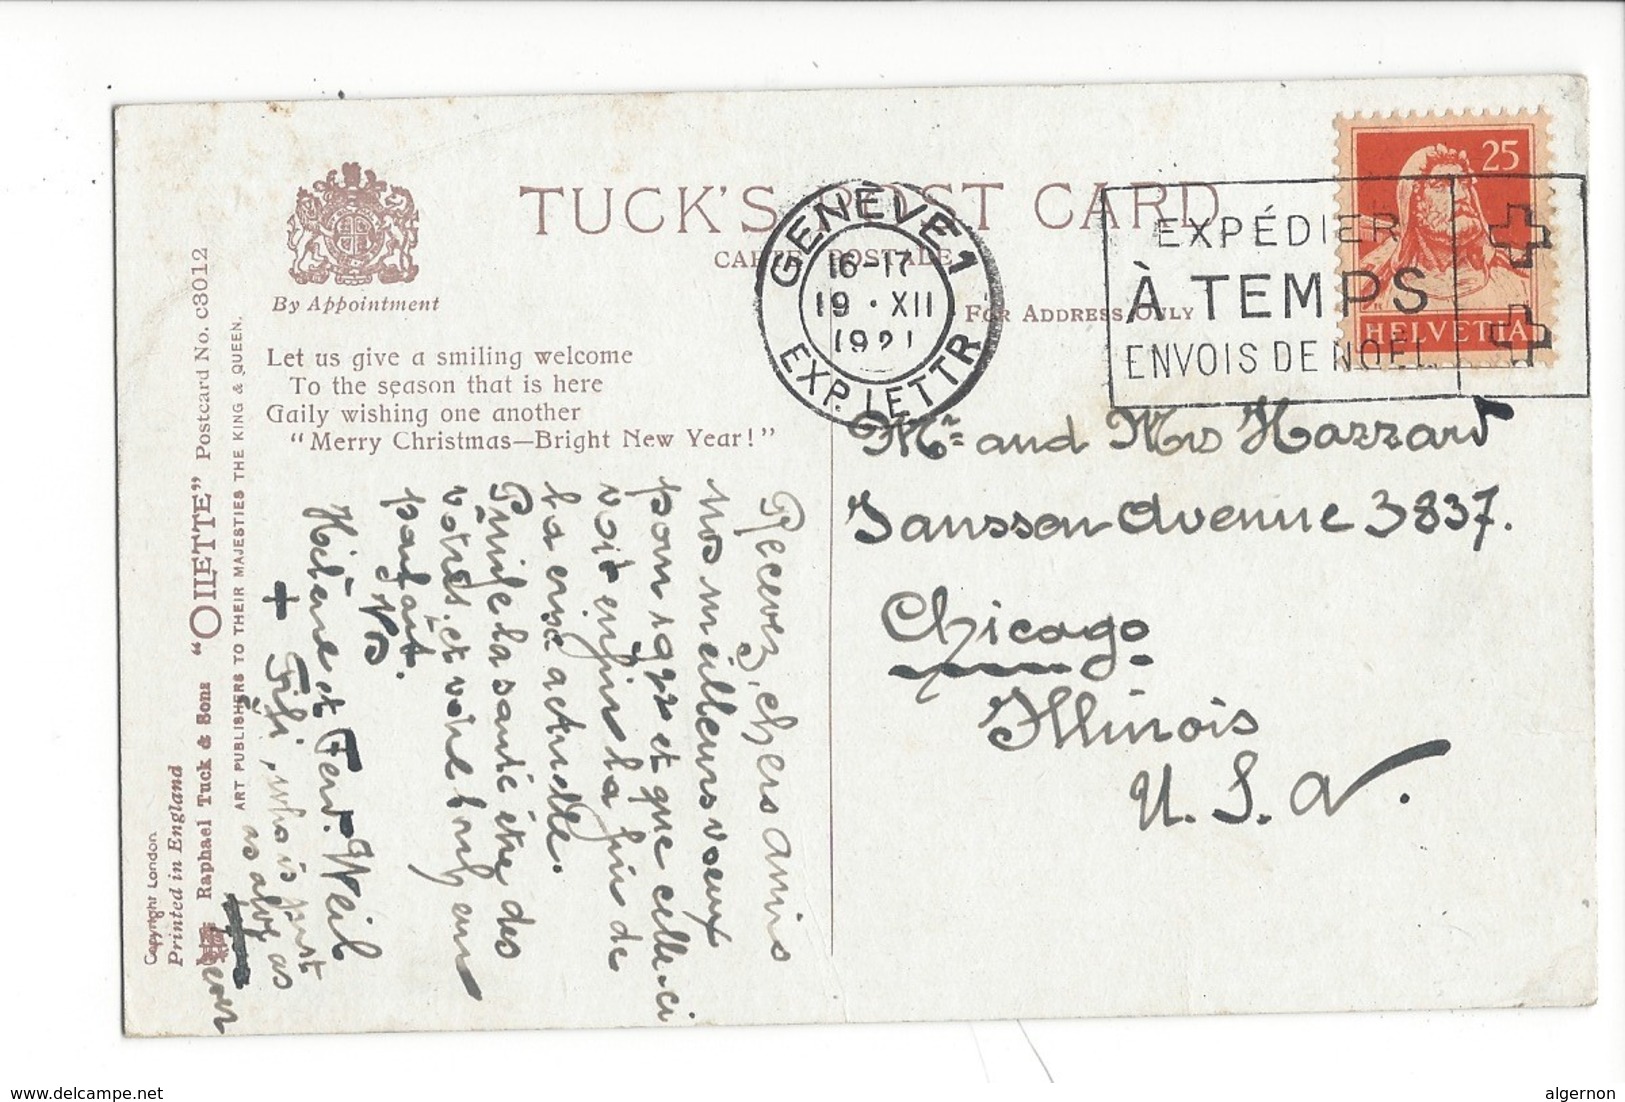 TUCK'S POST CARD
CARTE POSTALE
By Appointment
FOR ADDRESS ONLY
GENÈVE 1
16-17
19 · XII
1921
EXP. LETTR
EXPÉDIER
À TEMPS
ENVOIS DE NOËL
25
HELVETIA
Let us give a smiling welcome
To the season that is here
Gaily wishing one another
"Merry Christmas—Bright New Year!"
Recevez, chers amis
nos meilleurs voeux
pour 1922 et que celle-ci
voit enfin la fin de
la crise actuelle.
Puisse la santé être des
vôtres et votre
partout.
Hélène et Ferd. Weil
+ Fifi, who is just
as alog as
ever
Mr. and Mrs Hazzard
Janssen Avenue 3837.
Chicago
Illinois
U. S. A.
"OILETTE" Postcard No. C3012
Raphael Tuck & Sons
ART PUBLISHERS TO THEIR MAJESTIES THE KING & QUEEN.
Printed in England
Copyright London
www.delcampe.net
algernon